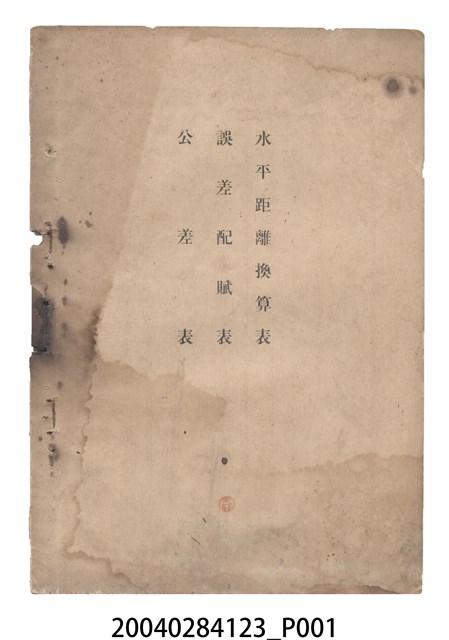 水平距離換算表
誤差配賦表
公差表
20040284123_P001